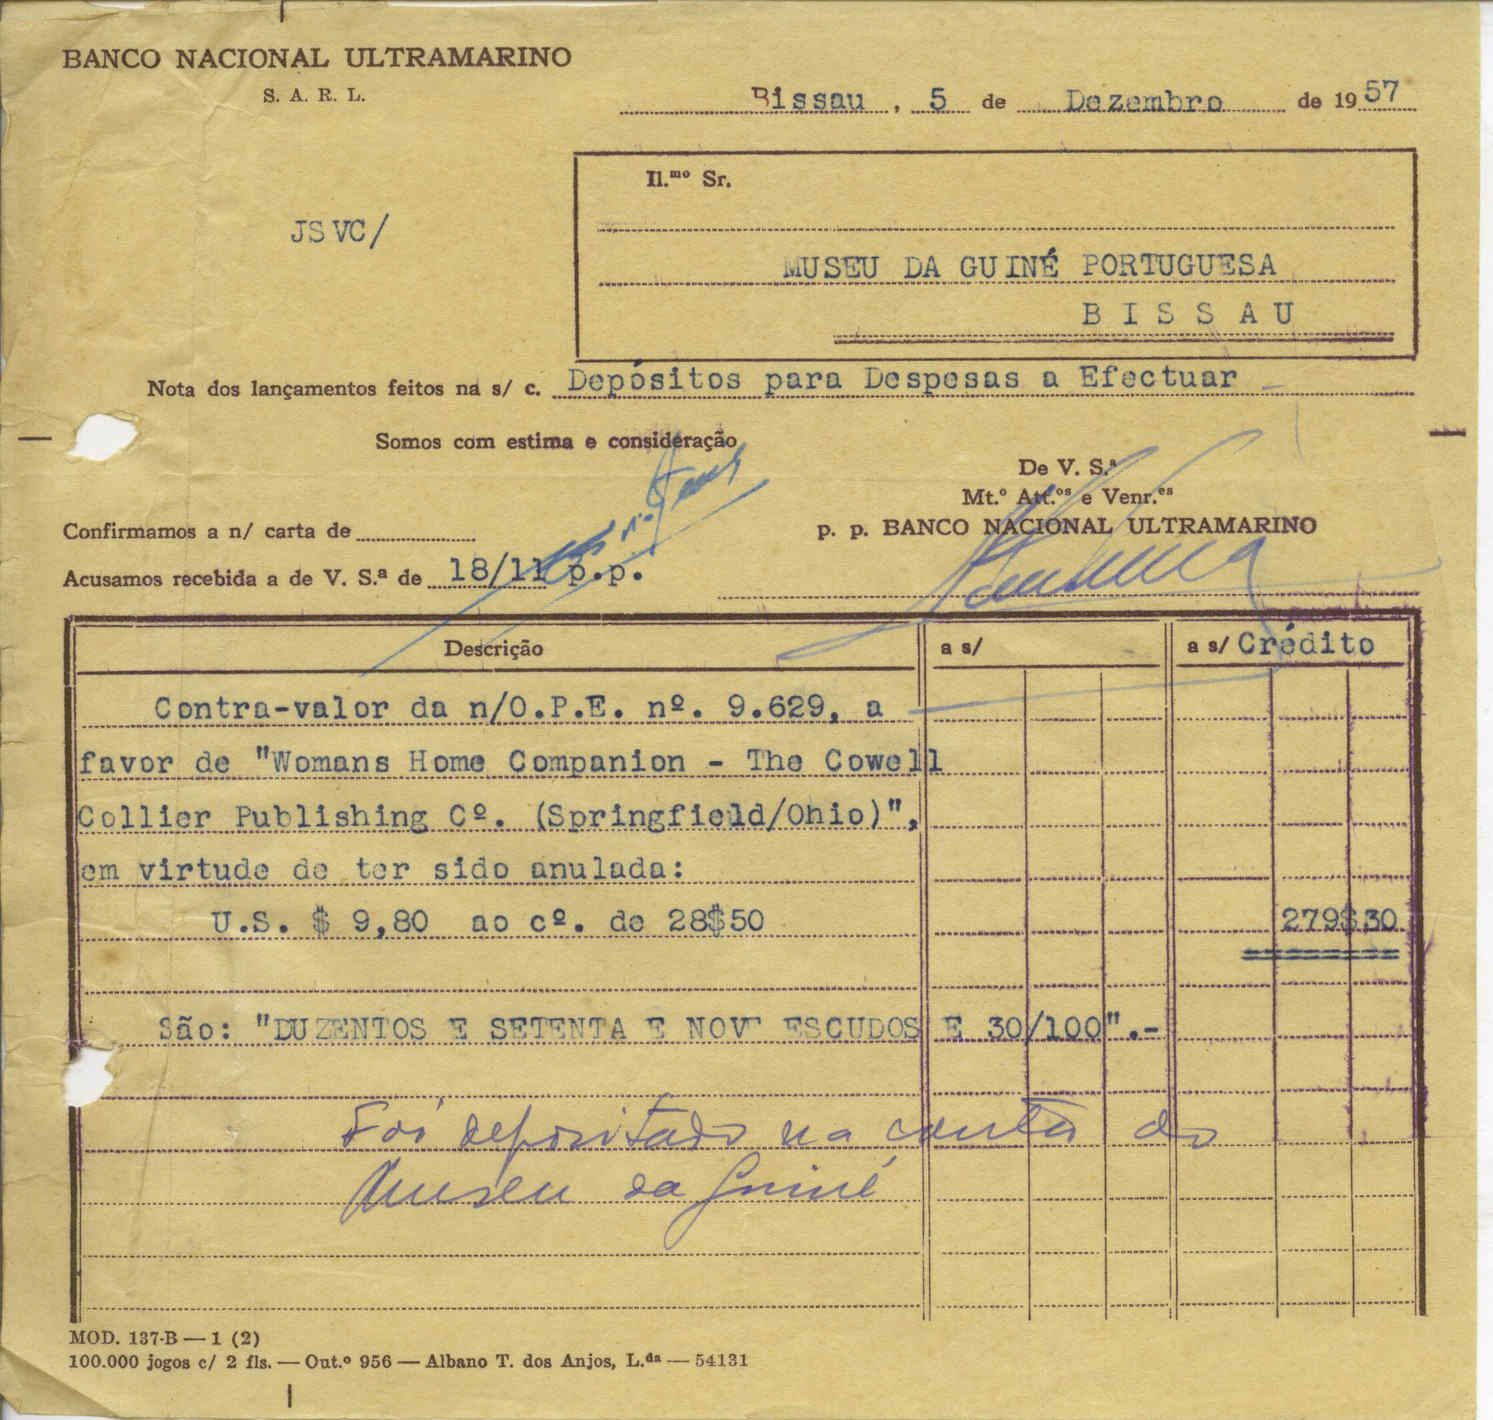 BANCO NACIONAL ULTRAMARINO
S. A. R. L.
Bissau, 5 de Dezembro de 1957
Il.mo Sr.
JSVC/
MUSEU DA GUINÉ PORTUGUESA
BISSAU
Nota dos lançamentos feitos na s/ c. Depósitos para Despesas a Efectuar
Somos com estima e consideração
De V. S.ª
Mt.º Att.os e Venr.es
Confirmamos a n/ carta de
p. p. BANCO NACIONAL ULTRAMARINO
Acusamos recebida a de V. S.ª de 18/11 p.p.
Descrição a s/ a s/ Crédito
Contra-valor da n/O.P.E. nº. 9.629, a
favor de "Womans Home Companion - The Cowell
Collier Publishing Cº. (Springfield/Ohio)",
em virtude de ter sido anulada:
U.S. $ 9,80 ao cº. de 28$50 279$30
São: "DUZENTOS E SETENTA E NOVE ESCUDOS E 30/100".-
Foi depositado na conta do
Museu da Guiné
MOD. 137-B — 1 (2)
100.000 jogos c/ 2 fls. — Out.º 956 — Albano T. dos Anjos, L.da — 54131